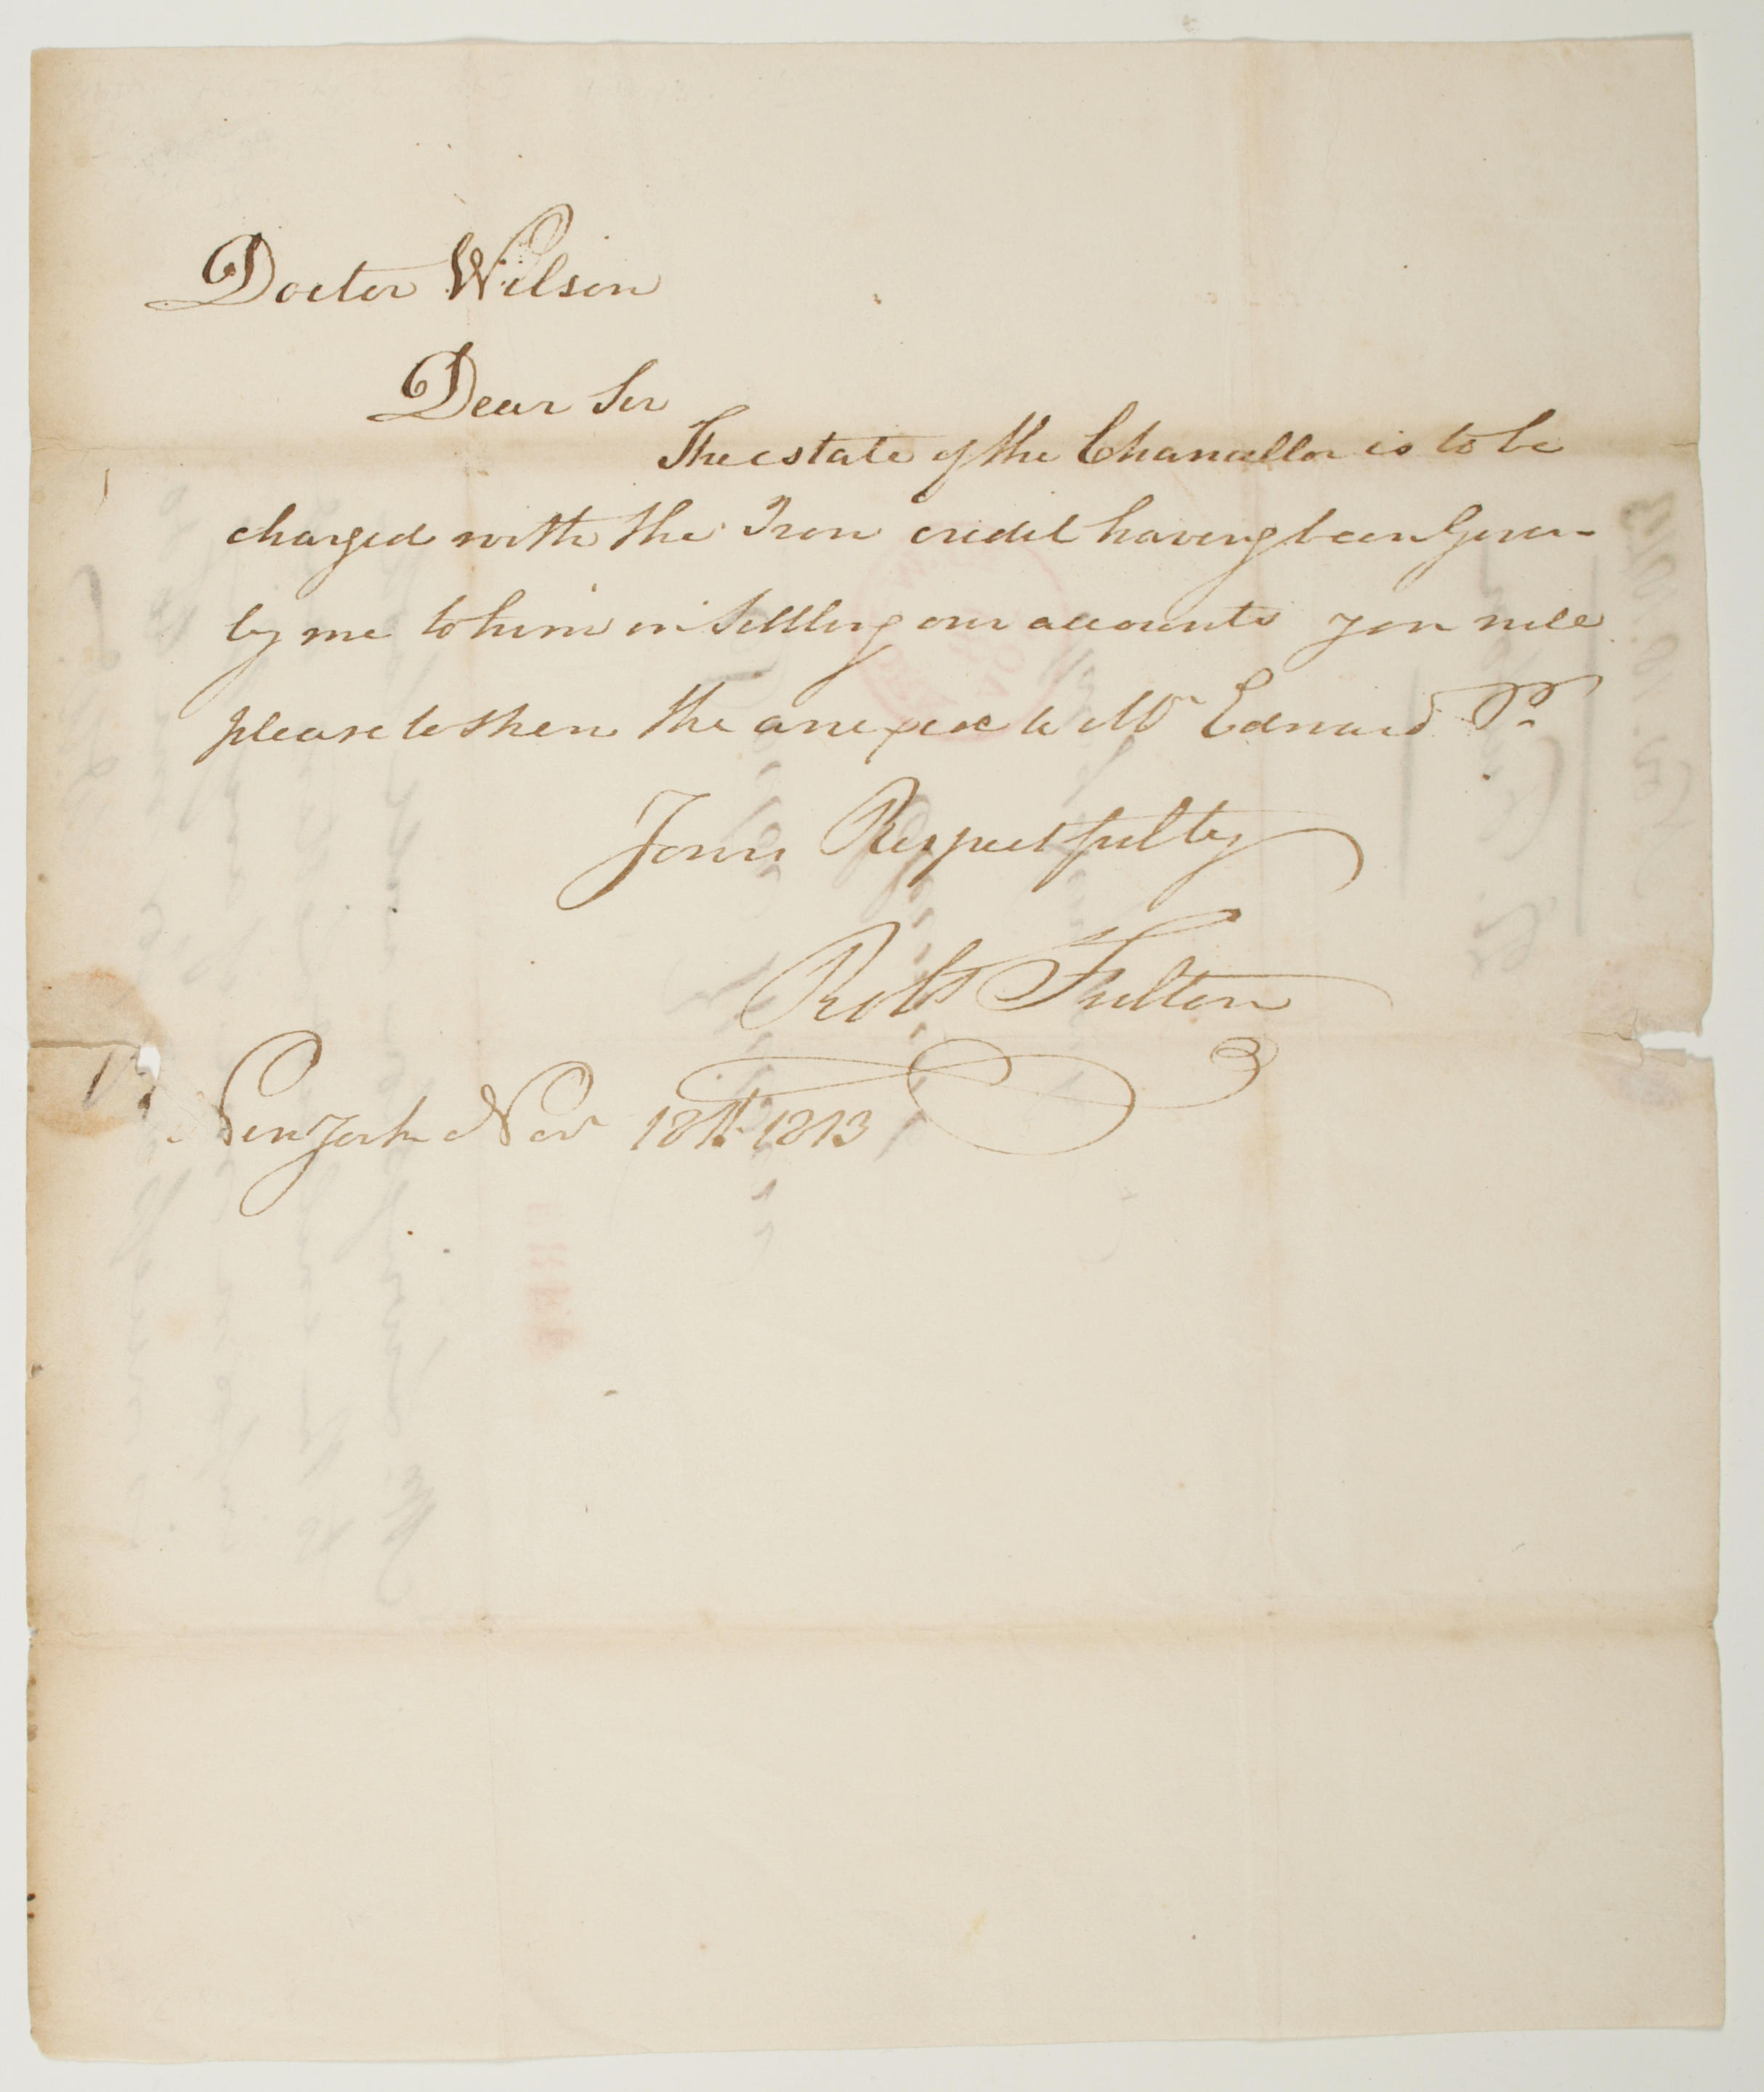 Doctor Wilson
Dear Sir
The estate of the Chancellor is to be
charged with the Iron credit having been Given
by me to him in Settling our accounts you will
please to shew the annexed to Mr Edward P.
Yours Respectfully
Robt Fulton
New York Nov 18th 1813